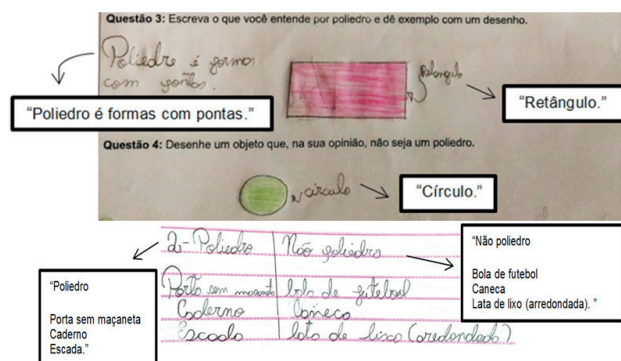 Questão 3: Escreva o que você entende por poliedro e dê exemplo com um desenho.
Poliedro é formas
com pontas.
Retangulo
“Poliedro é formas com pontas.”
“Retângulo.”
Questão 4: Desenhe um objeto que, na sua opinião, não seja um poliedro.
círculo
“Círculo.”
2-Poliedro Não poliedro
Porta sem maçaneta bola de futebol
Caderno Caneca
Escada lata de lixo (aredondada)
“Poliedro
Porta sem maçaneta
Caderno
Escada.”
“Não poliedro
Bola de futebol
Caneca
Lata de lixo (arredondada). ”